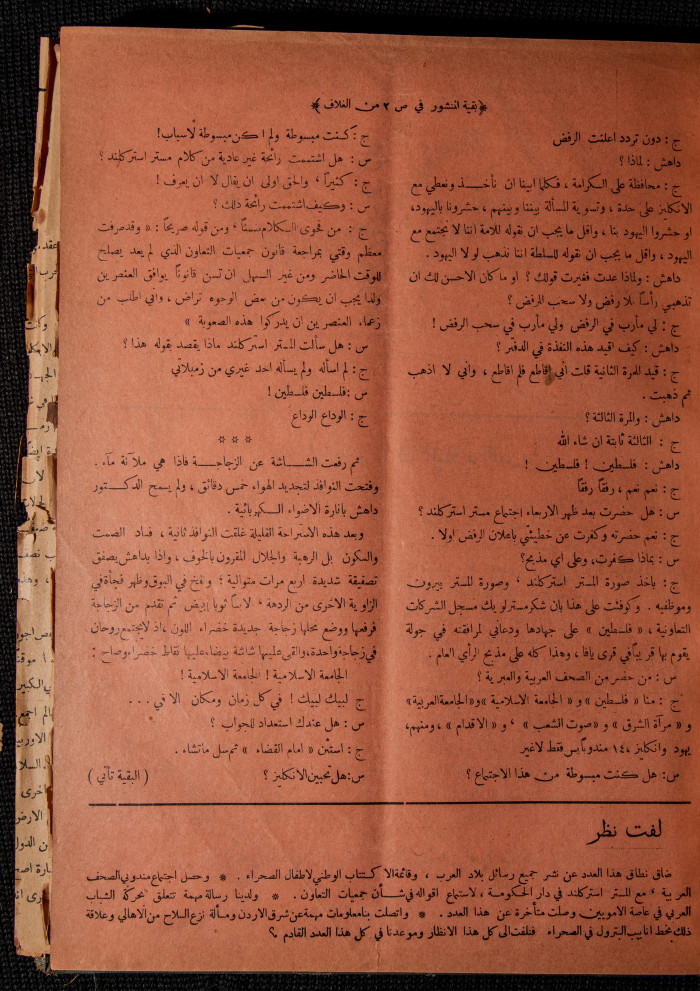 ﴿ بقية المنشور في ص ٢ من الغلاف ﴾
ج : دون تردد اعلنت الرفض
داهش : لماذا ؟
ج : محافظة على الكرامة ، فكلما ابينا ان نأخذ ونعطي مع
الانكليز على حدة ، وتسوية المسألة بيننا وبينهم ، حشرونا باليهود،
او حشروا اليهود بنا ، واقل ما يجب ان نقوله للامة اننا لا نجتمع مع
اليهود ، واقل ما يجب ان نقوله للسلطة اننا نذهب لو لا اليهود .
داهش : ولماذا عدت فغيرت قولك ؟ او ما كان الاحسن لك ان
تذهبي رأساً بلا رفض ولا سحب الرفض ؟
ج : لي مأرب في الرفض ولي مأرب في سحب الرفض !
داهش : كيف اقيد هذه النفذة في الدفتر ؟
ج : قيد للمرة الثانية قلت أني اقاطع فلم اقاطع ، وأني لا اذهب
ثم ذهبت .
داهش : والمرة الثالثة ؟
ج : الثالثة ثابتة ان شاء الله
داهش : فلسطين ! فلسطين !
ج : نعم نعم ، رفقاً رفقاً
س : هل حضرت بعد ظهر الاربعاء اجتماع مستر استركلند ؟
ج : نعم حضرته وكفرت عن خطيئتي باعلان الرفض اولا .
س : بماذا كفرت، وعلى اي مذبح؟
ج : باخذ صورة المستر استركلند ' وصورة للمستر بيرون
وموظفيه . وكوفئت على هذا بان شكر مستر لويك مسجل الشركات
التعاونية ، « فلسطين » على جهادها ودعاني لمرافقته في جولة
يقوم بها قريباً في قرى يافا ، وهذا كله على مذبح الرأي العام .
س : من حضر من الصحف العربية والعبرية ؟
ج : منا « فلسطين » و « الجامعة الاسلامية » و « الجامعة العربية »
و « مرآة الشرق » و « صوت الشعب » ' و « الاقدام » ، ومنهم،
يهود وانكليز ، ١٤ مندوباً بس فقط لاغير
س : هل كنت مبسوطة من هذا الاجتماع ؟
ج : كنت مبسوطة ولم اكن مبسوطة لاسباب !
س : هل اشتممت رائحة غير عادية من كلام مستر استركلند ؟
ج : كثيراً ' والحق اولى ان يقال لا ان يعرف !
س : وكيف اشتممت رائحة ذلك ؟
ج : من فحوى الكلام ضمناً ' ومن قوله صريحاً : « وقد صرفت
معظم وقتي بمراجعة قانون جمعيات التعاون الذي لم يعد يصلح
للوقت الحاضر ومن غير السهل ان تسن قانوناً يوافق العنصرين
ولذا يجب ان يكون من بعض الوجوه تراض ، واني اطلب من
زعماء العنصرين ان يدركوا هذه الصعوبة »
س : هل سألت المستر استركلند ماذا يقصد بقوله هذا ؟
ج : لم اسأله ولم يسأله احد غيري من زميلاتي
س : فلسطين فلسطين !
ج : الوداع الوداع
* * *
ثم رفعت الشاشة عن الزجاجة فاذا هي ملآنة مآء .
وفتحت النوافذ لتجديد الهواء خمس دقائق ، ولم يسمح الدكتور
داهش بانارة الاضواء الكهربائية .
وبعد هذه الاستراحة القليلة غلقت النوافذ ثانية ، فساد الصمت
والسكون بل الرهبة والجلال المقرون بالخوف ، واذا بداهش يصفق
تصفيقة شديدة اربع مرات متوالية ؛ ونفخ في البوق وظهر فجأة في
الزاوية الاخرى من الردهة ' لابساً ثوباً ابيض ثم تقدم من الزجاجة
فرفعها ووضع محلها زجاجة جديدة خضراء اللون ،اذ لا يجتمع روحان
في زجاجة واحدة، والقى عليها شاشة بيضاء عليها نقاط خضراء وصاح :
الجامعة الاسلامية ! الجامعة الاسلامية !
ج : لبيك لبيك ! في كل زمان ومكان الا في . . .
س : هل عندك استعداد للجواب ؟
ج : استبن « امام القضاء » ثم سل ما تشاء .
س : هل تحبين الانكليز ؟ ( البقية تأتي )
لفت نظر
ضاق نطاق هذا العدد عن نشر جميع رسائل بلاد العرب ، وقائمة الاكتتاب الوطني لاطفال الصحراء . * وحصل اجتماع مندوبي الصحف
العربية ' مع المستر استركلند في دار الحكومة ، لاستماع اقواله في شأن جمعيات التعاون . * ولدينا رسالة مهمة تتعلق بحركة الشباب
العربي في عاصمة الامويين وصلت متأخرة عن هذا العدد . * واتصلت بنا معلومات مهمة عن شرق الاردن ومسألة نزع السلاح من الاهالي وعلاقة
ذلك بمحط انابيب البترول في الصحراء فنلفت الى كل هذا الانظار وموعدنا في كل هذا العدد القادم .؟